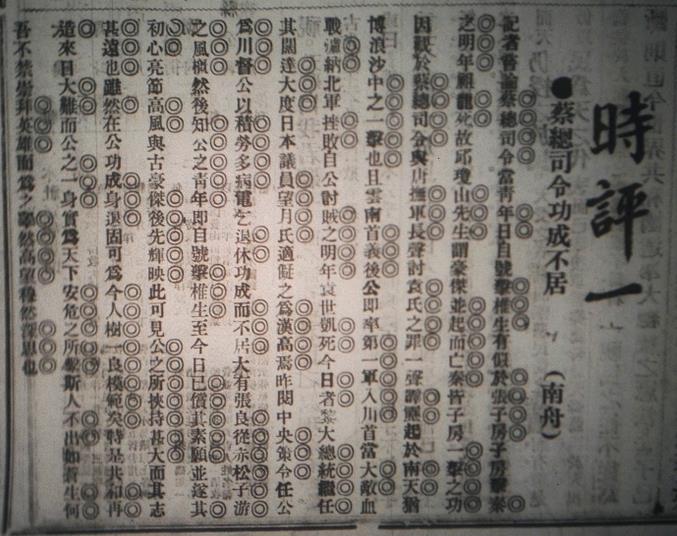 時評一
●蔡總司令功成不居 (南舟)
記者嘗論蔡總司令當青年日自號擊椎生有似於張子房子房擊秦
之明年祖龍死故邱瓊山先生謂豪傑並起而亡秦皆子房一擊之功
因祝於蔡總司令與唐撫軍長聲討袁氏之罪一聲霹靂起於南天猶
博浪沙中之一擊也且雲南首義後公即率第一軍入川首當大敵血
戰瀘納北軍挫敗自公討賊之明年袁世凱死今日者黎大總統繼任
其闊達大度日本議員望月氏適儗之爲漢高焉昨閱中央策令任公
爲川督公以積勞多病電乞退休功成而不居大有張良從赤松子游
之風槪然後知公之青年即自號擊椎生至今日已償其素願並遂其
初心亮節高風與古豪傑後先輝映此可見公之所挾持甚大而其志
甚遠也雖然在公功成身退固可爲今人樹一良模範矣特是共和再
造來日大難而公之一身實爲天下安危之所繫斯人不出如蒼生何
吾不禁崇拜英雄而爲之 然高望穆然深思也